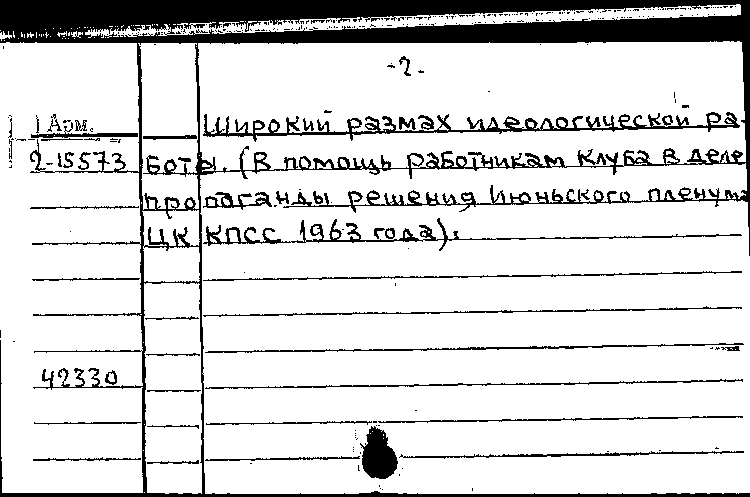 -2.
Арм. Широкий размах идеологической ра-
2-15573 боты. (В помощь работникам клуба в деле
пропаганды решения Июньского пленума
ЦК КПСС 1963 года).
42330